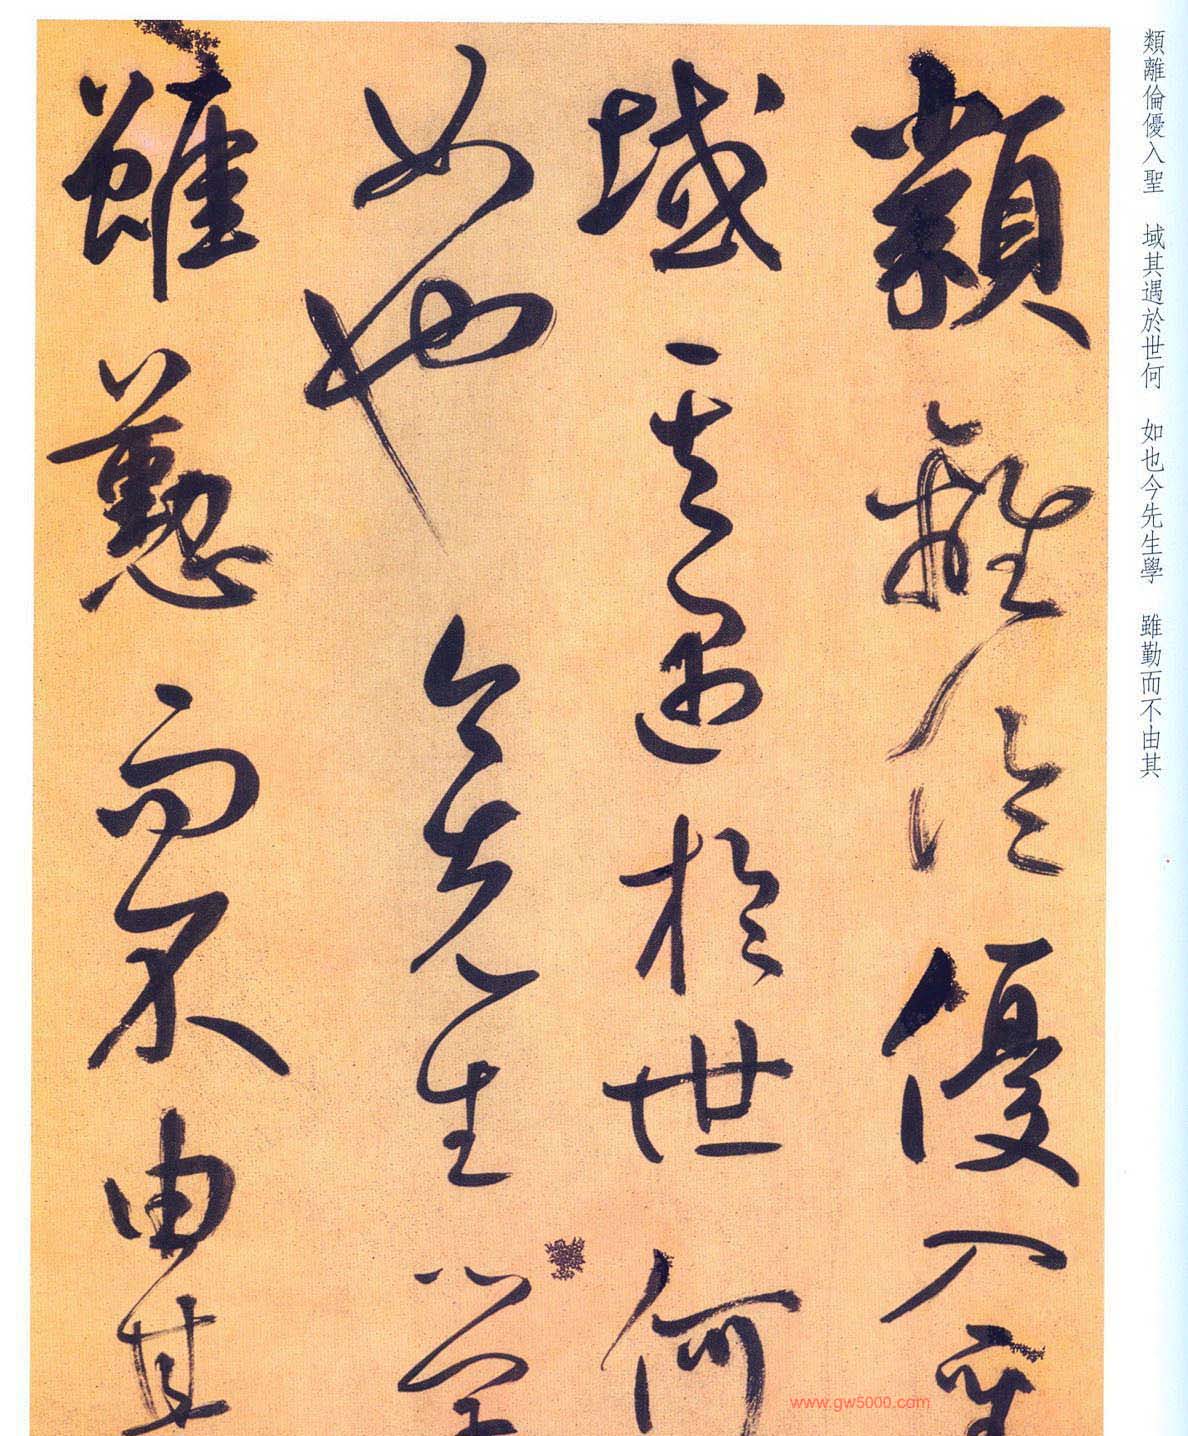 類離倫優入聖
域其遇於世何
如也今先生學
雖勤而不由其
類離倫優入聖　域其遇於世何　如也今先生學　雖勤而不由其
www.gw5000.com